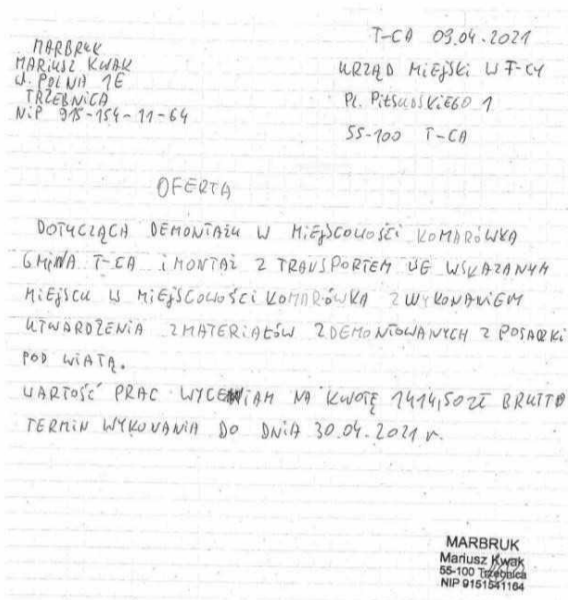 T-CA 09.04.2021
MARBRUK
MARIUSZ KWAK
UL. POLNA 1E
TRZEBNICA
NIP 915-154-11-64
URZĄD MIEJSKI W T-CY
PL. PIŁSUDSKIEGO 1
55-100 T-CA
OFERTA
DOTYCZĄCA DEMONTAŻU W MIEJSCOWOŚCI KOMARÓWKA
GMINA T-CA I MONTAŻ Z TRANSPORTEM WE WSKAZANYM
MIEJSCU W MIEJSCOWOŚCI KOMARÓWKA Z WYKONANIEM
UTWARDZENIA Z MATERIAŁÓW ZDEMONTOWANYCH Z POSADZKI
POD WIATĄ.
WARTOŚĆ PRAC WYCENIAM NA KWOTĘ 1414,50 ZŁ BRUTTO
TERMIN WYKONANIA DO DNIA 30.04.2021 r.
MARBRUK
Mariusz Kwak
55-100 Trzebnica
NIP 9151541164